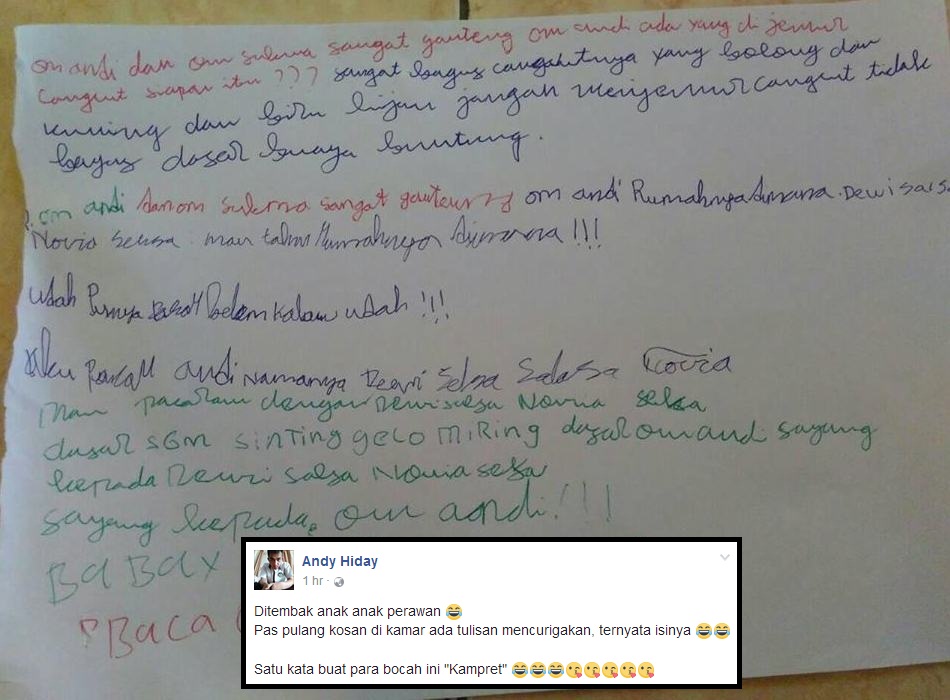 om andi dan om sukma sangat ganteng om andi ada yang di jemur
cangcut siapa itu ??? sangat bagus cangcutnya yang bolong dan
kuning dan biru hijau jangan menjemur cangcut tidak
bagus dasar buaya buntung.
om andi dan om sukma sangat ganteng om andi Rumahnya dimana. Dewi salsa
Novia seksa mau tahu Rumahnya dimana !!!
udah Punya belom kalau udah !!!
Aku andi namanya Dewi Salsa Novia
Mau pacaran dengan Dewi salsa Novia seksa
dasar SGM SINTING GELO MIRING dasar om andi sayang
kepada Dewi Salsa Novia seksa
sayang kepada om andi!!!
BABAY
BACA
Andy Hiday
1 hr ·
Ditembak anak anak perawan 😂
Pas pulang kosan di kamar ada tulisan mencurigakan, ternyata isinya 😂😂
Satu kata buat para bocah ini "Kampret" 😂😂😂😘😘😘😘😘